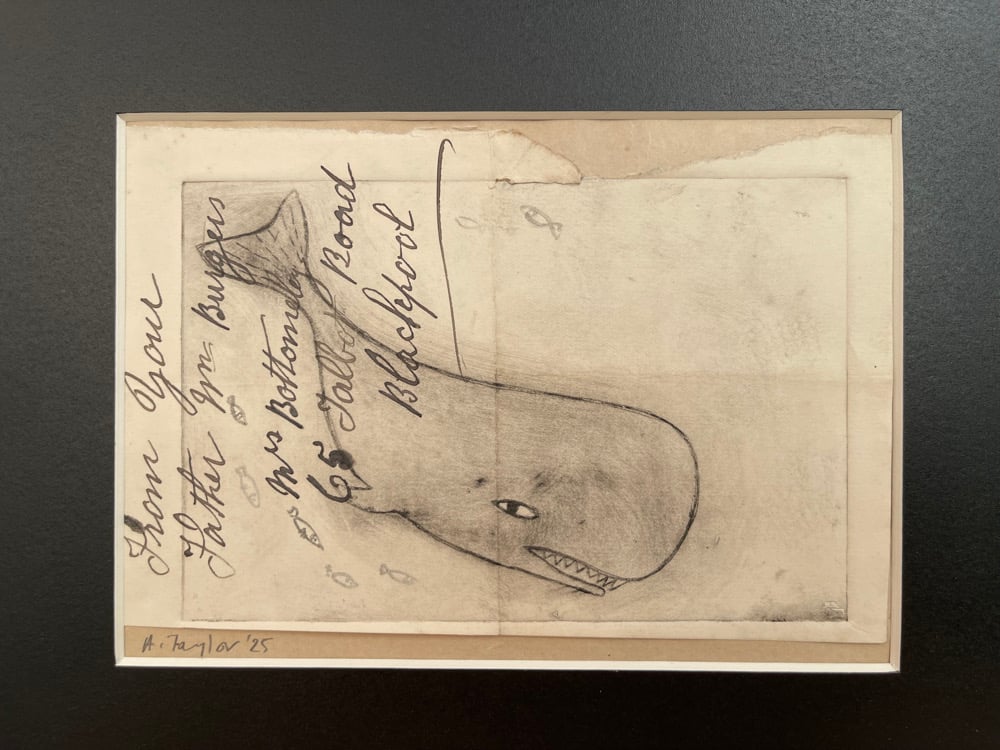 From Your
Father Mr. Burgess
Mrs Bottomley
65 Talbot Road
Blackpool
A. Taylor '25